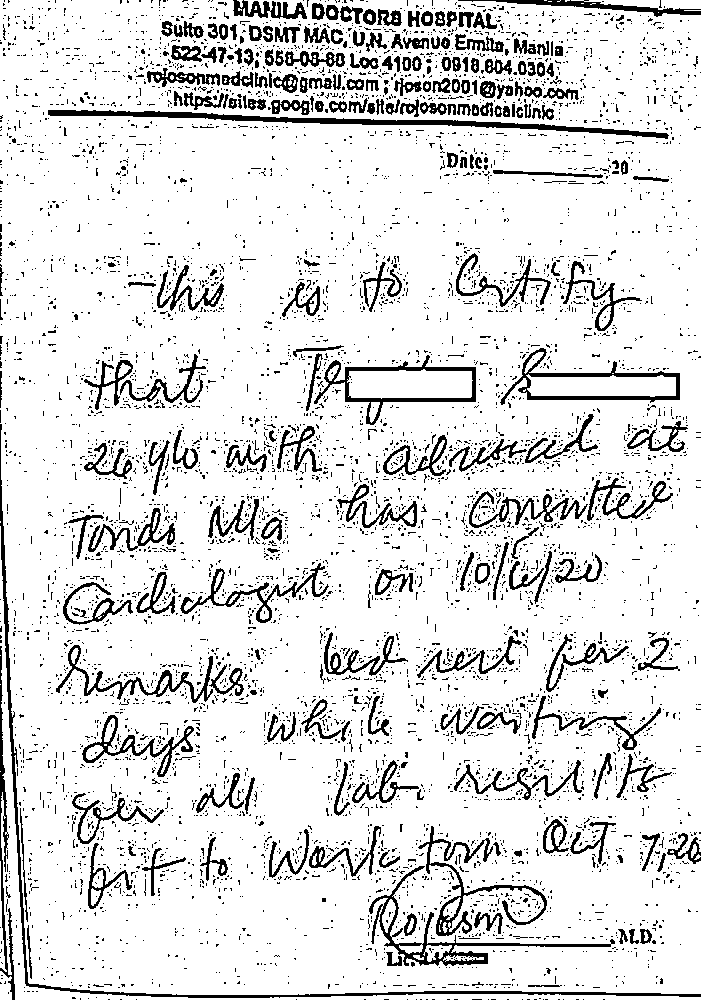 MANILA DOCTORS HOSPITAL
Suite 301, DSMT MAC, U.N. Avenue Ermita, Manila
522-47-13; 558-08-88 Loc 4100 ; 0918.804.0304
rojosonmedclinic@gmail.com ; rjoson2001@yahoo.com
https://sites.google.com/site/rojosonmedicalclinic
Date: ____________ 20 ____
This is to Certify
that
26 y/o with adressed at
Tondo Mla has consulted
Cardiologist on 10/6/20
remarks: bed rest for 2
days while waiting
for all lab. results
fit to work tom. Oct. 7, 20
Rojoson
M.D.
Lic.